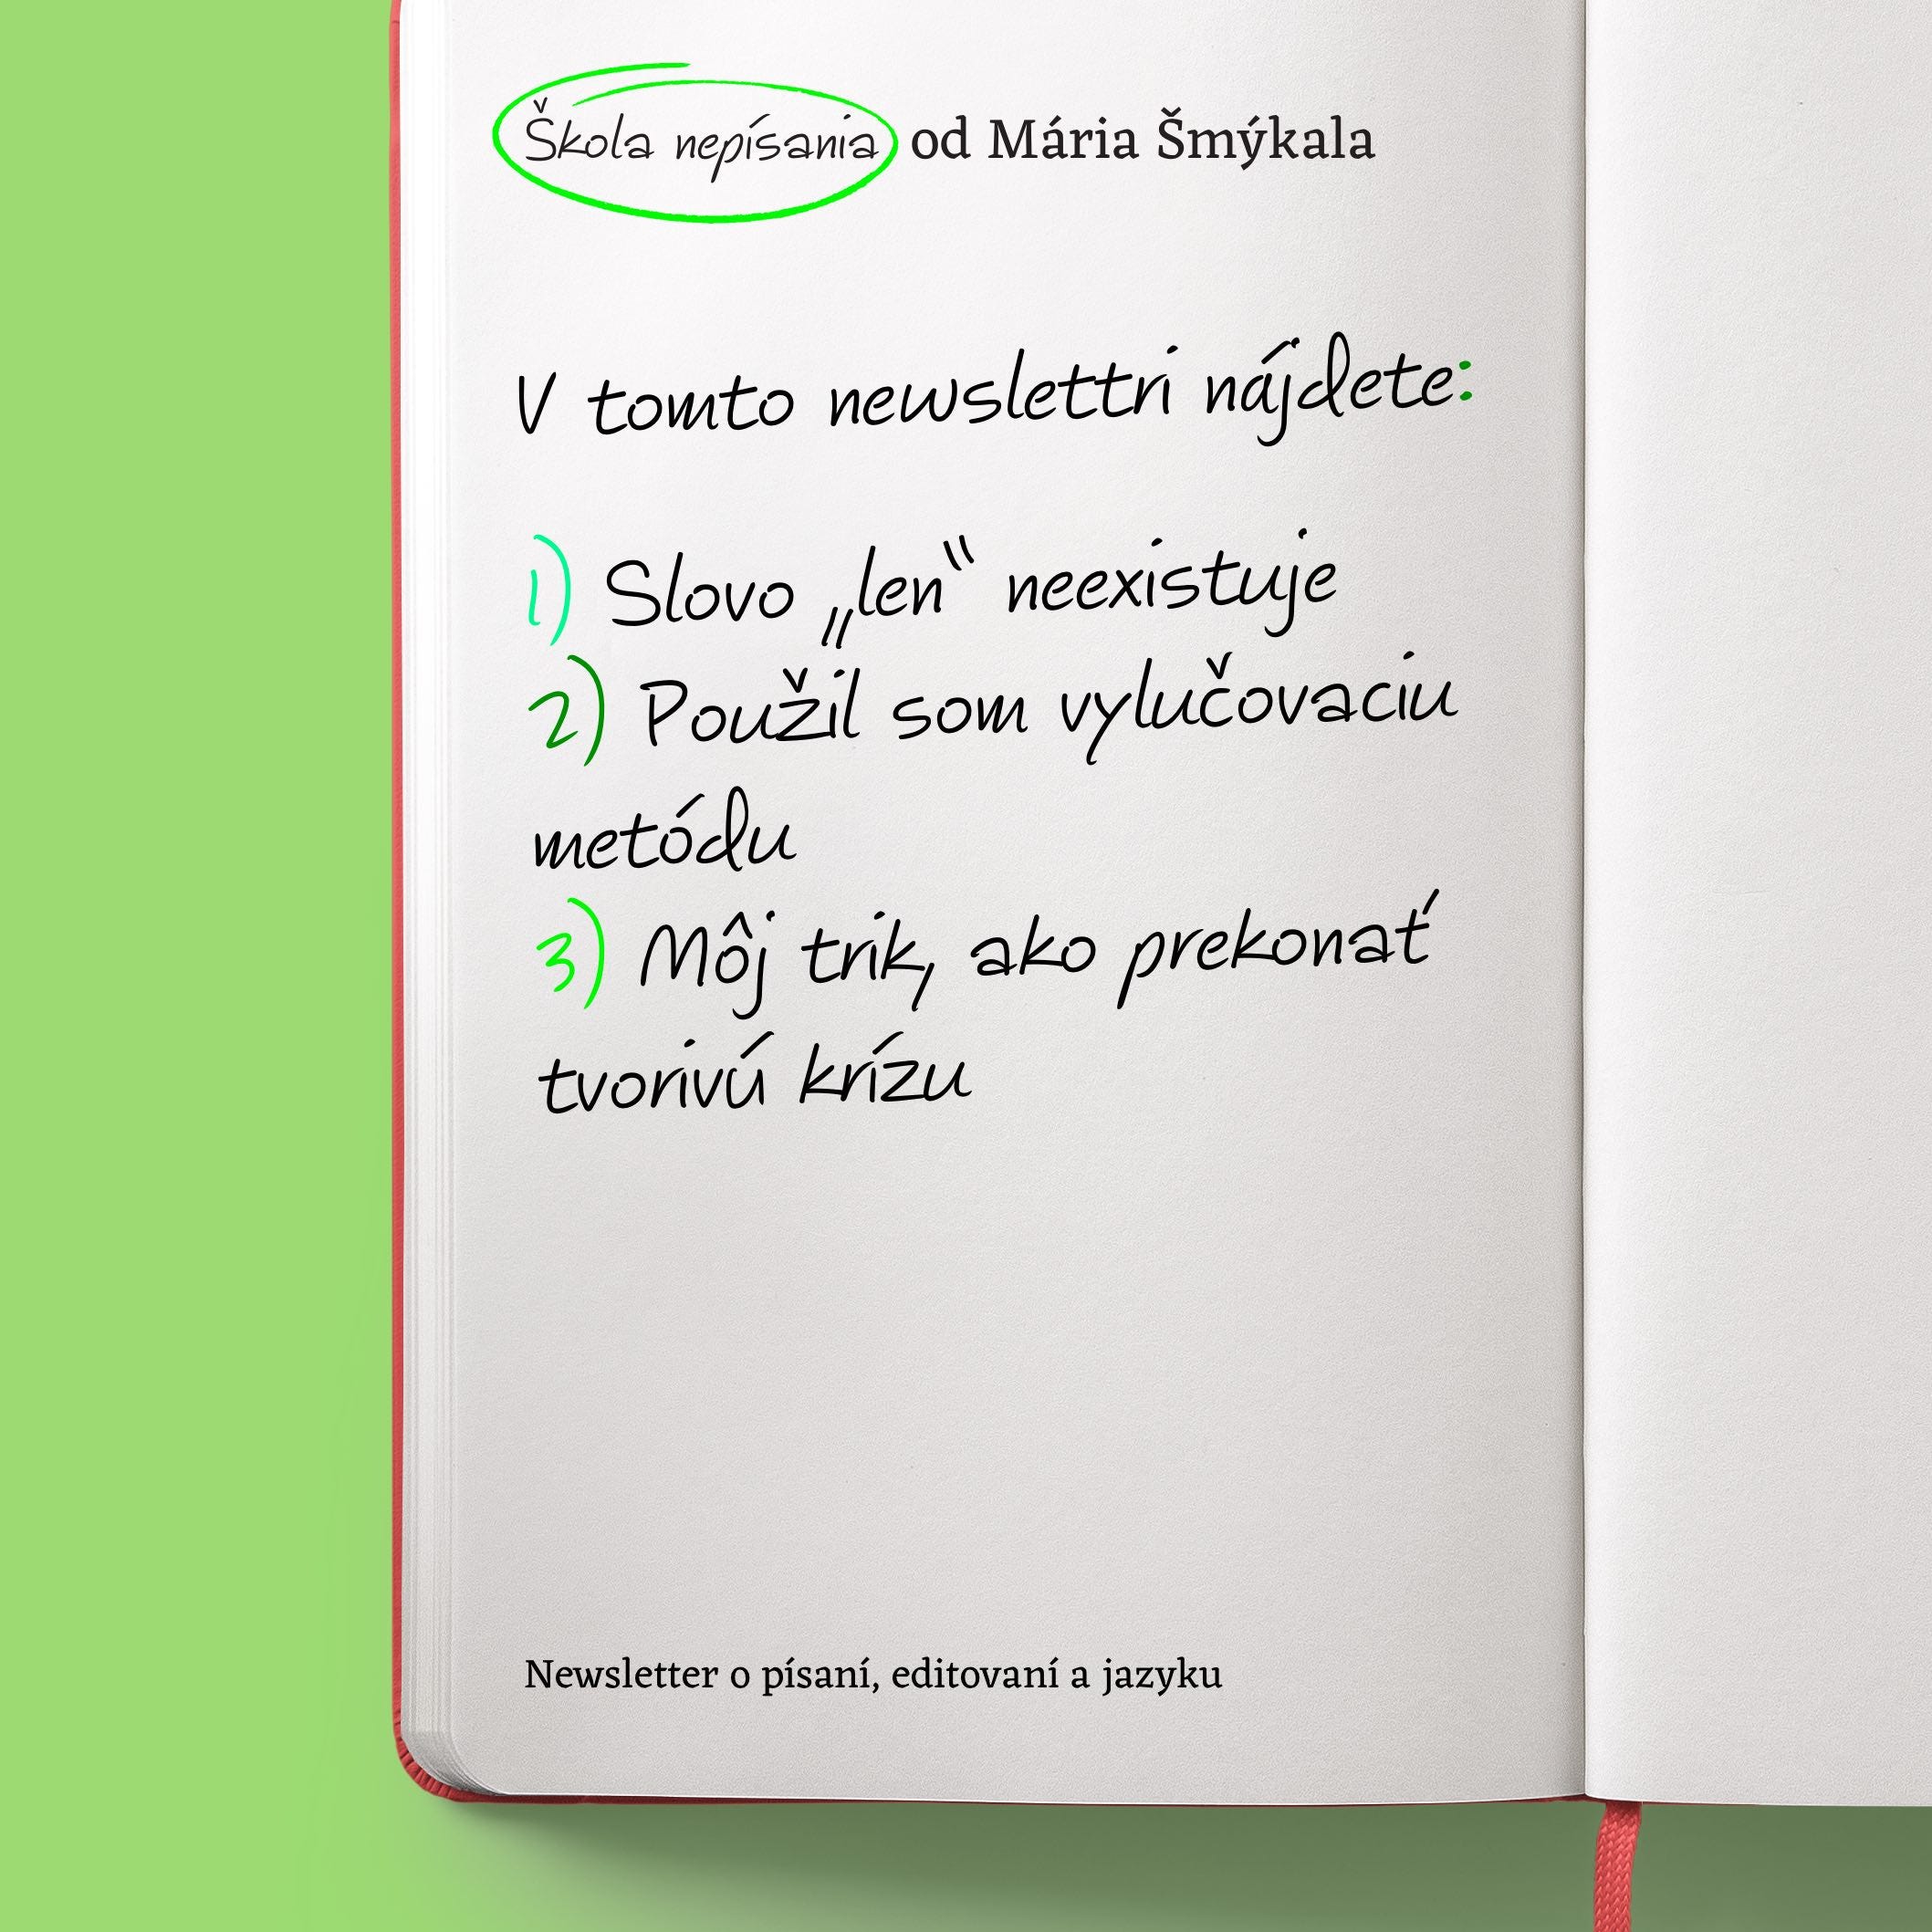 Škola nepísania od Mária Šmýkala
V tomto newslettri nájdete:
1) Slovo „len“ neexistuje
2) Použil som vylučovaciu
metódu
3) Môj trik, ako prekonať
tvorivú krízu
Newsletter o písaní, editovaní a jazyku